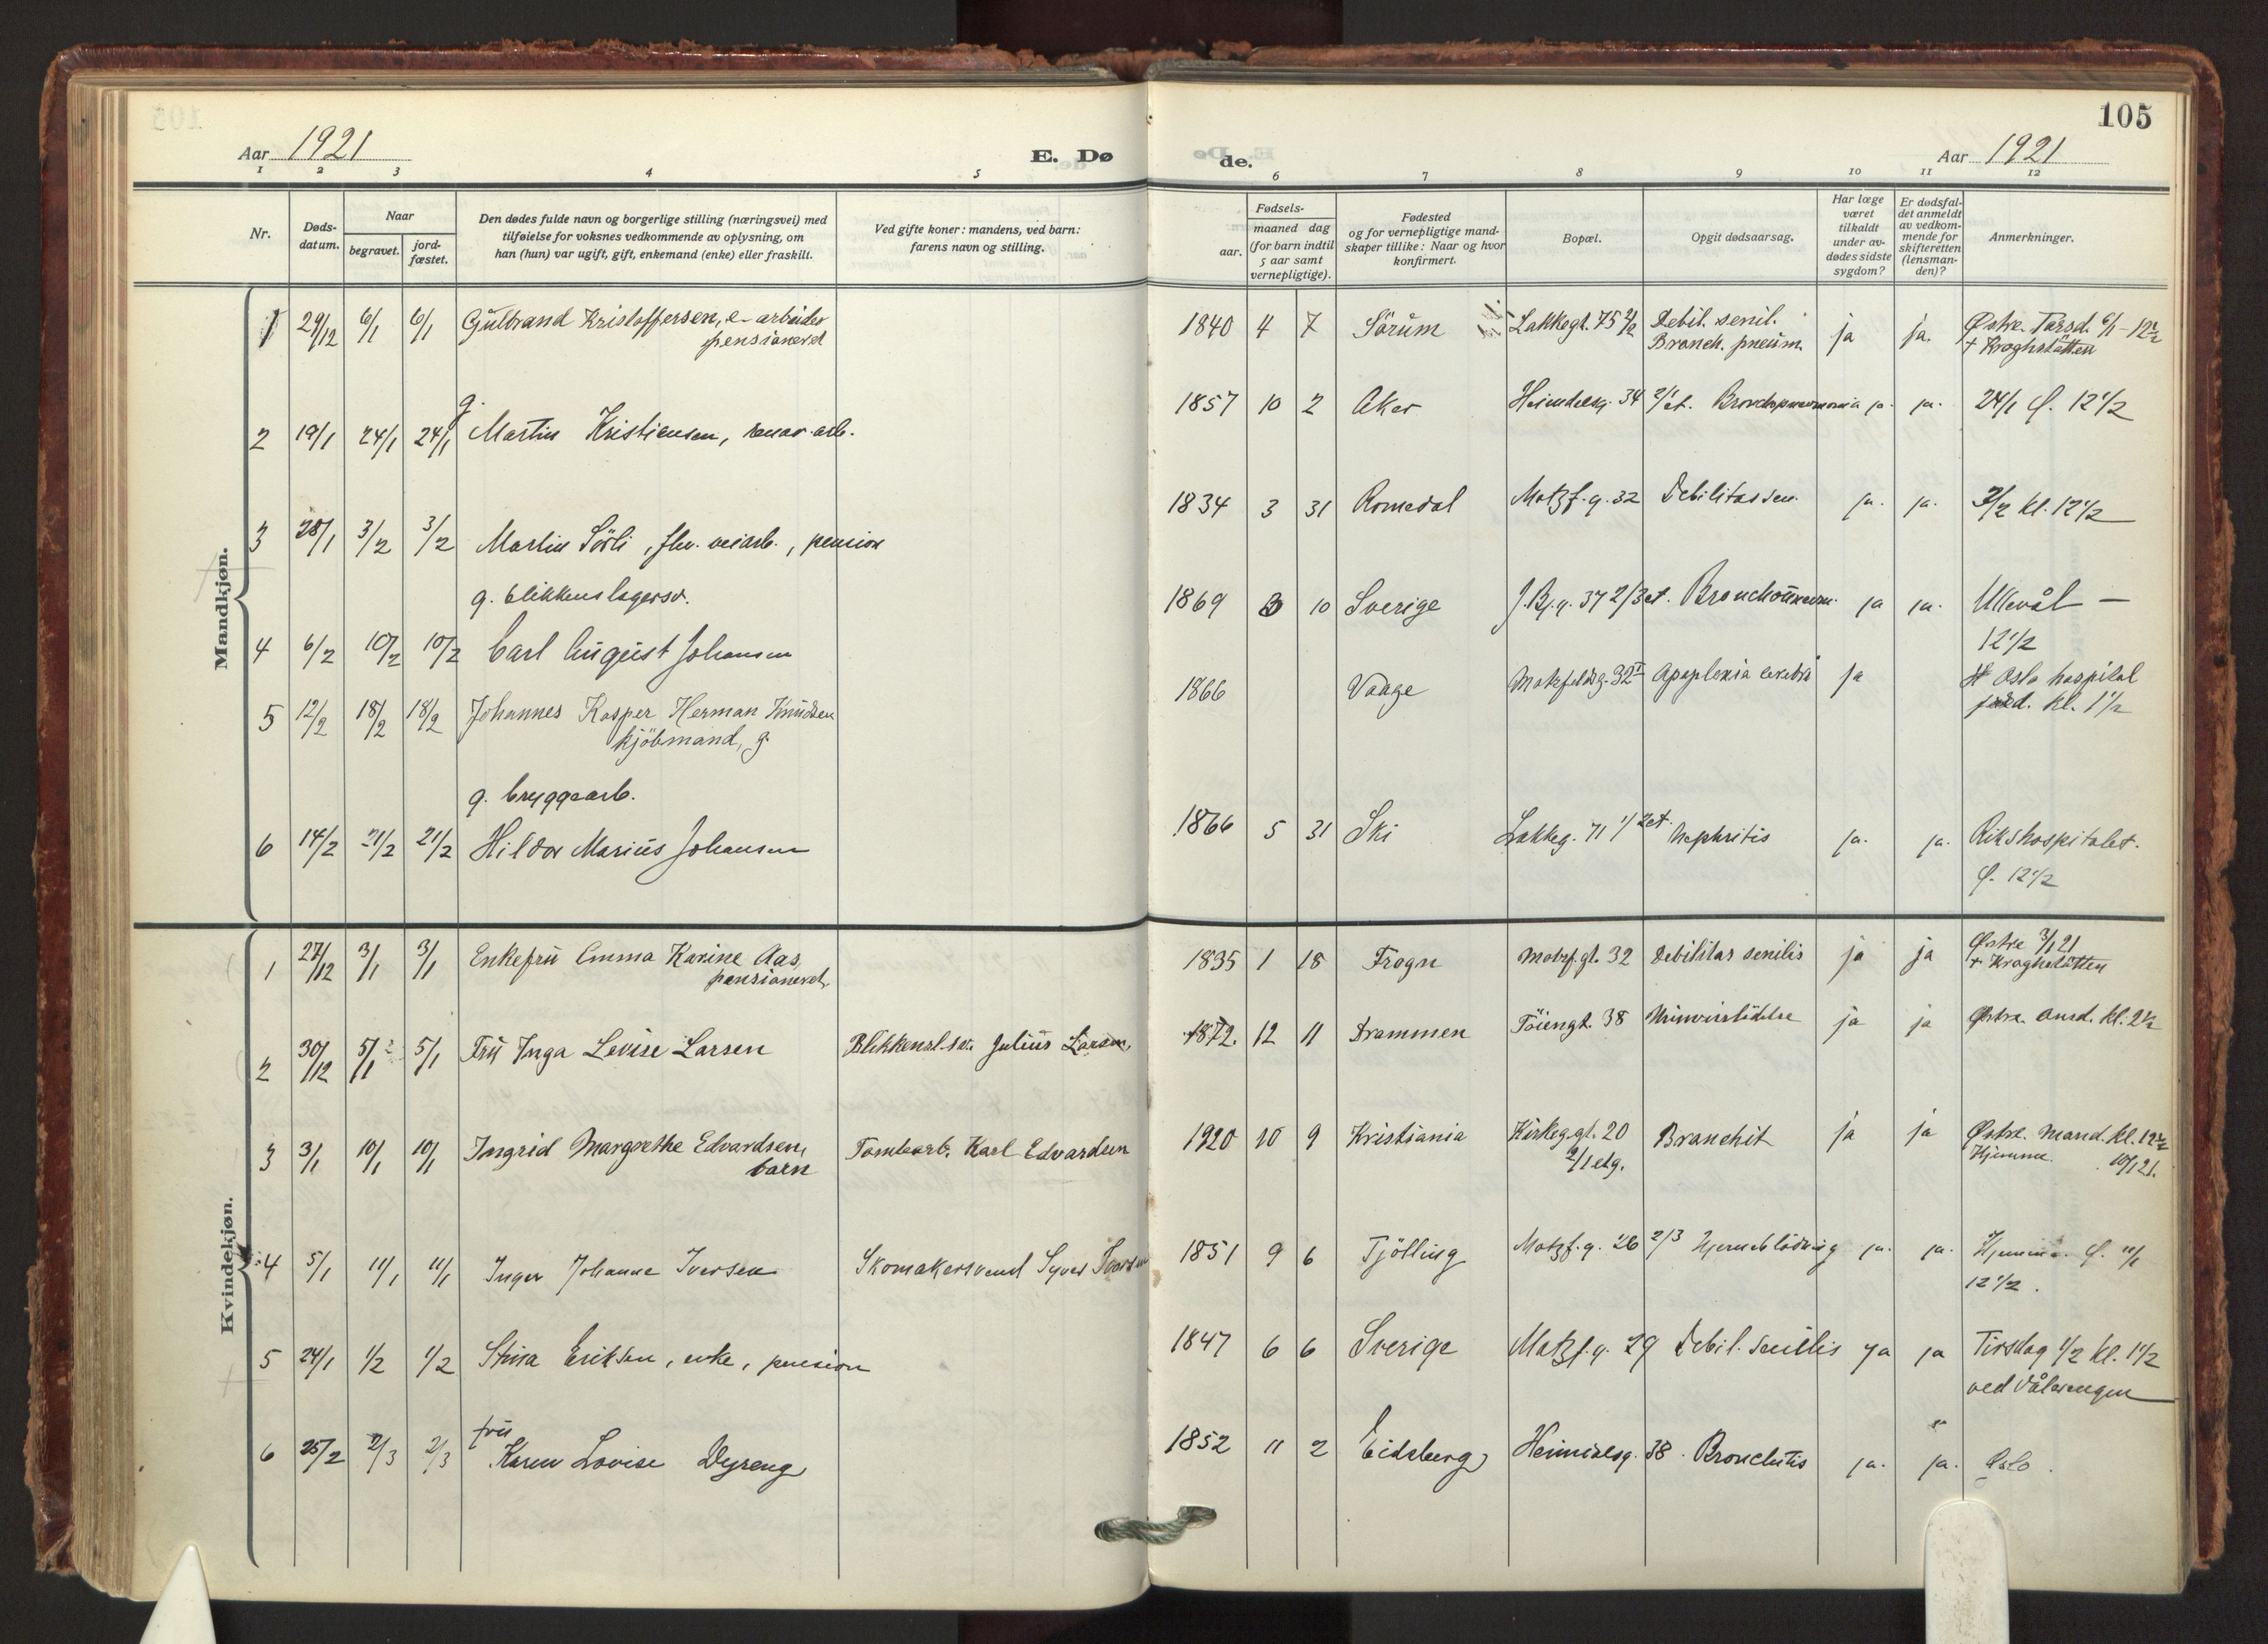 105
Aar 1921
E. Dø
de.
Aar 1921
1 2 3 4 5 6 7 8 9 10 11 12
Nr.
Døds-
datum.
Naar
begravet.
jord-
fæstet.
Den dødes fulde navn og borgerlige stilling (næringsvei) med
tilføielse for voksnes vedkommende av oplysning, om
han (hun) var ugift, gift, enkemand (enke) eller fraskilt.
Ved gifte koner: mandens, ved barn:
farens navn og stilling.
Fødsels-
aar.
maaned dag
(for barn indtil
5 aar samt
vernepligtige).
Fødested
og for vernepligtige mand-
skaper tillike: Naar og hvor
konfirmert.
Bopæl.
Opgit dødsaarsag.
Har læge
været
tilkaldt
under av-
dødes sidste
sygdom?
Er dødsfal-
det anmeldt
av vedkom-
mende for
skifteretten
(lensman-
den)?
Anmerkninger.
Mandkjøn.
1 29/12 6/1 6/1 Gulbrand Kristoffersen, e-arbeider 1840 4 7 Sörum Lakkegt. 75 Debil. senil. ja ja. Østre. Torsd. 6/1 - 12 1/2
pensioneret Bronch. pneum. + Kroghstøtten
g.
2 19/1 24/1 24/1 Martin Kristiensen, renov. arb. 1857 10 2 Aker Heimdalsg. 34 2/1 et. Bronchopneumonia ja. ja. 24/1 Q. 12 1/2
3 28/1 3/2 3/2 Martin Sörli, fhv. veiarb., pension 1834 3 31 Romedal Motzf.g. 32 Debilitas sen. ja. ja. 3/2 kl. 12 1/2
g. blikkenslagersv.
4 6/2 10/2 10/2 Carl August Johansen 1869 3 10 Sverige J.B.g. 37 2/3 et. Bronchopneum. ja ja. Ullevål —
12 1/2
5 12/2 18/2 18/2 Johannes Kasper Herman Knudsen 1866 Vaage Motzfeldsg. 32 I Apoplexia cerebri ja Oslo hospital
kjöbmand, g. kl. 1 1/2
g. bryggearb.
6 14/2 21/2 21/2 Hildor Marius Johansen 1866 5 31 Ski Lakkeg. 71 1/2 et. Nephritis ja. ja. Rikshospitalet.
Q. 12 1/2
Kvindekjøn.
1 27/12 3/1 3/1 Enkefru Emma Karine Aas, 1835 1 18 Frogn Motzf.gt. 32 Debilitas senilis ja ja Østre 3/1 21
pensioneret. + Kroghstøtten
2 30/12 5/1 5/1 Fru Inga Levise Larsen Blikkensl.sv. Julius Larsen, 1872. 12 11 Drammen Töiengt. 38 ja ja Østre. Onsd. kl. 2 1/2
3 3/1 10/1 10/1 Ingrid Margrethe Edvardsen, Tomtearb. Karl Edvardsen 1920 10 9 Kristiania Kirkeg.gt. 20 Bronchit ja ja Østre. Mand. kl. 12 1/2
barn 2/1 etg. Hjemme. 10/1 21.
4 5/1 11/1 11/1 Inger Johanne Iversen Skomakersvend Syver Iversen 1851 9 6 Tjölling Motzf.g. 26 2/3 Hjerneblödning ja. ja. Hjemme. Q. 11/1
12 1/2.
5 24/1 1/2 1/2 Stina Eriksen, enke, pension 1847 6 6 Sverige Motzf.g. 29 Debil. senilis ja ja Tirsdag 1/2 kl. 1 1/2
ved Vålerengen
fru
6 25/2 2/3 2/3 Karen Lovise Dyreng 1852 11 2 Eidsberg Heimdalsg. 38. Bronchitis ja. ja. Oslo.